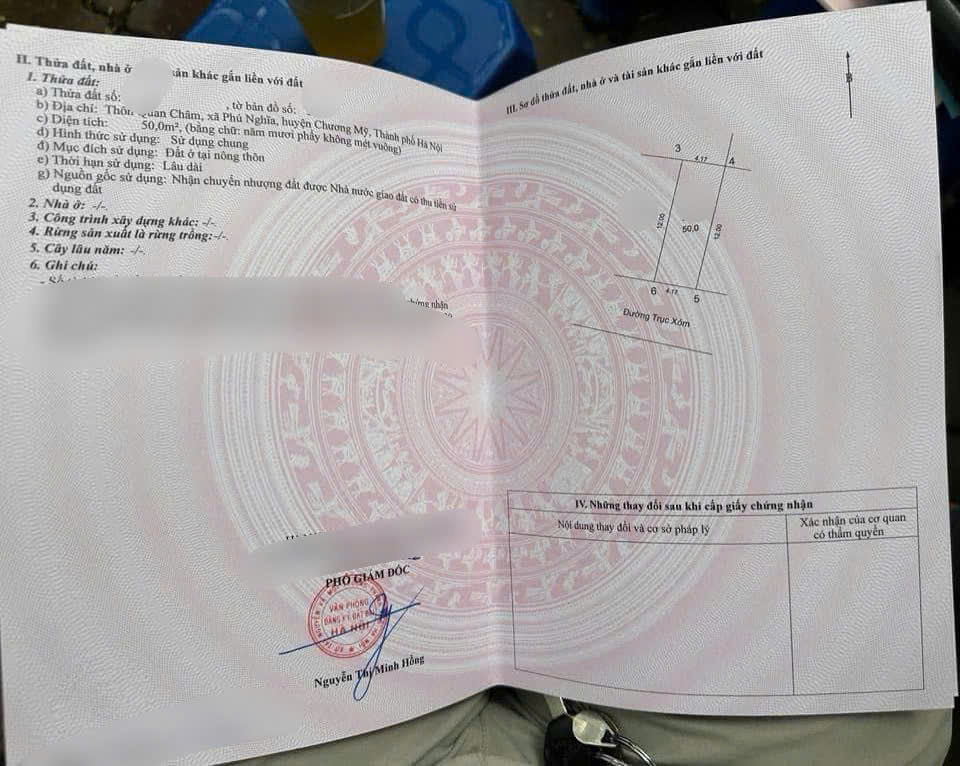 II. Thửa đất, nhà ở sản khác gắn liền với đất
1. Thửa đất:
a) Thửa đất số: , tờ bản đồ số:
b) Địa chỉ: Thôn Quan Châm, xã Phú Nghĩa, huyện Chương Mỹ, Thành phố Hà Nội
c) Diện tích: 50,0m², (bằng chữ: năm mươi phẩy không mét vuông)
d) Hình thức sử dụng: Sử dụng chung
đ) Mục đích sử dụng: Đất ở tại nông thôn
e) Thời hạn sử dụng: Lâu dài
g) Nguồn gốc sử dụng: Nhận chuyển nhượng đất được Nhà nước giao đất có thu tiền sử
dụng đất
2. Nhà ở: -/-.
3. Công trình xây dựng khác: -/-
4. Rừng sản xuất là rừng trồng:-/-.
5. Cây lâu năm: -/-.
6. Ghi chú:
nhận
PHÓ GIÁM ĐỐC
VĂN PHÒNG
ĐĂNG KÝ ĐẤT ĐAI
HÀ NỘI
Nguyễn Thị Minh Hồng
III. Sơ đồ thửa đất, nhà ở và tài sản khác gắn liền với đất
B
3
4.17
4
12.00
50,0
12.00
6
4.17
5
Đường Trục Xóm
IV. Những thay đổi sau khi cấp giấy chứng nhận
Nội dung thay đổi và cơ sở pháp lý
Xác nhận của cơ quan
có thẩm quyền